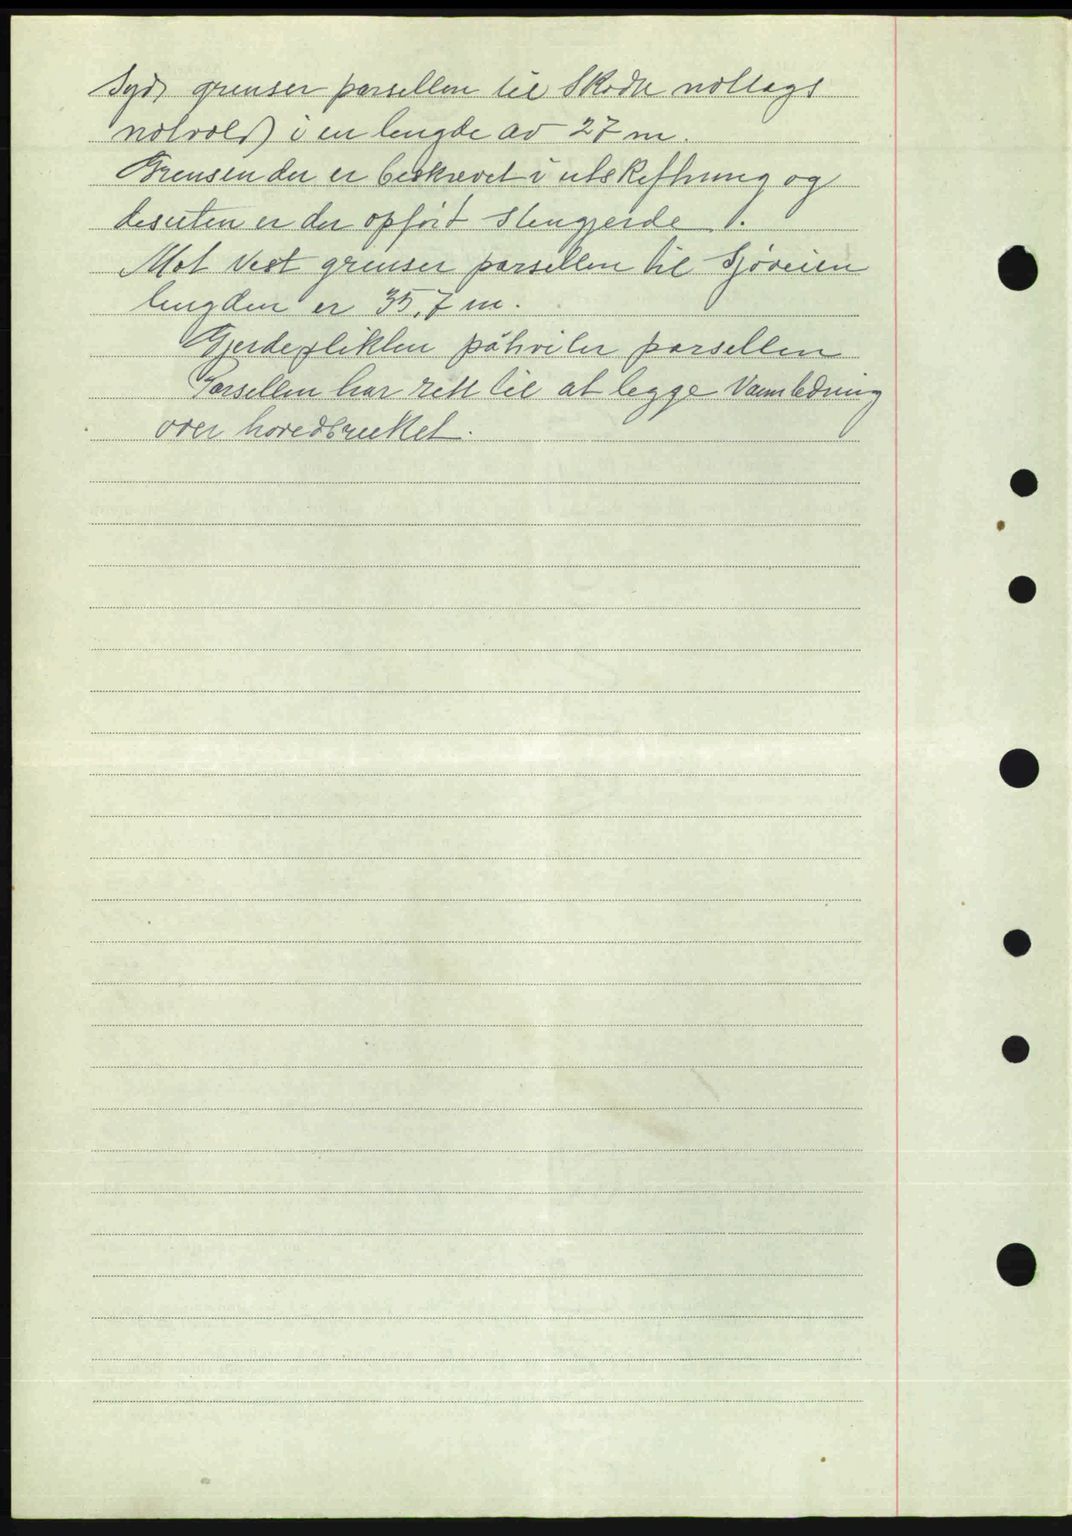 Syd, grenser parsellen til Skodje notlags
notvold) i en lengde av 27 m.
Grensen der er beskrevet i utskiftning og
desuten er der opført stengjerde.
Mot Vest grenser parsellen til Sjøveien
lengden er 35,7 m.
Gjerdeplikten påhviler parsellen
Parsellen har rett til at legge Vannledning
over hovedbruket.